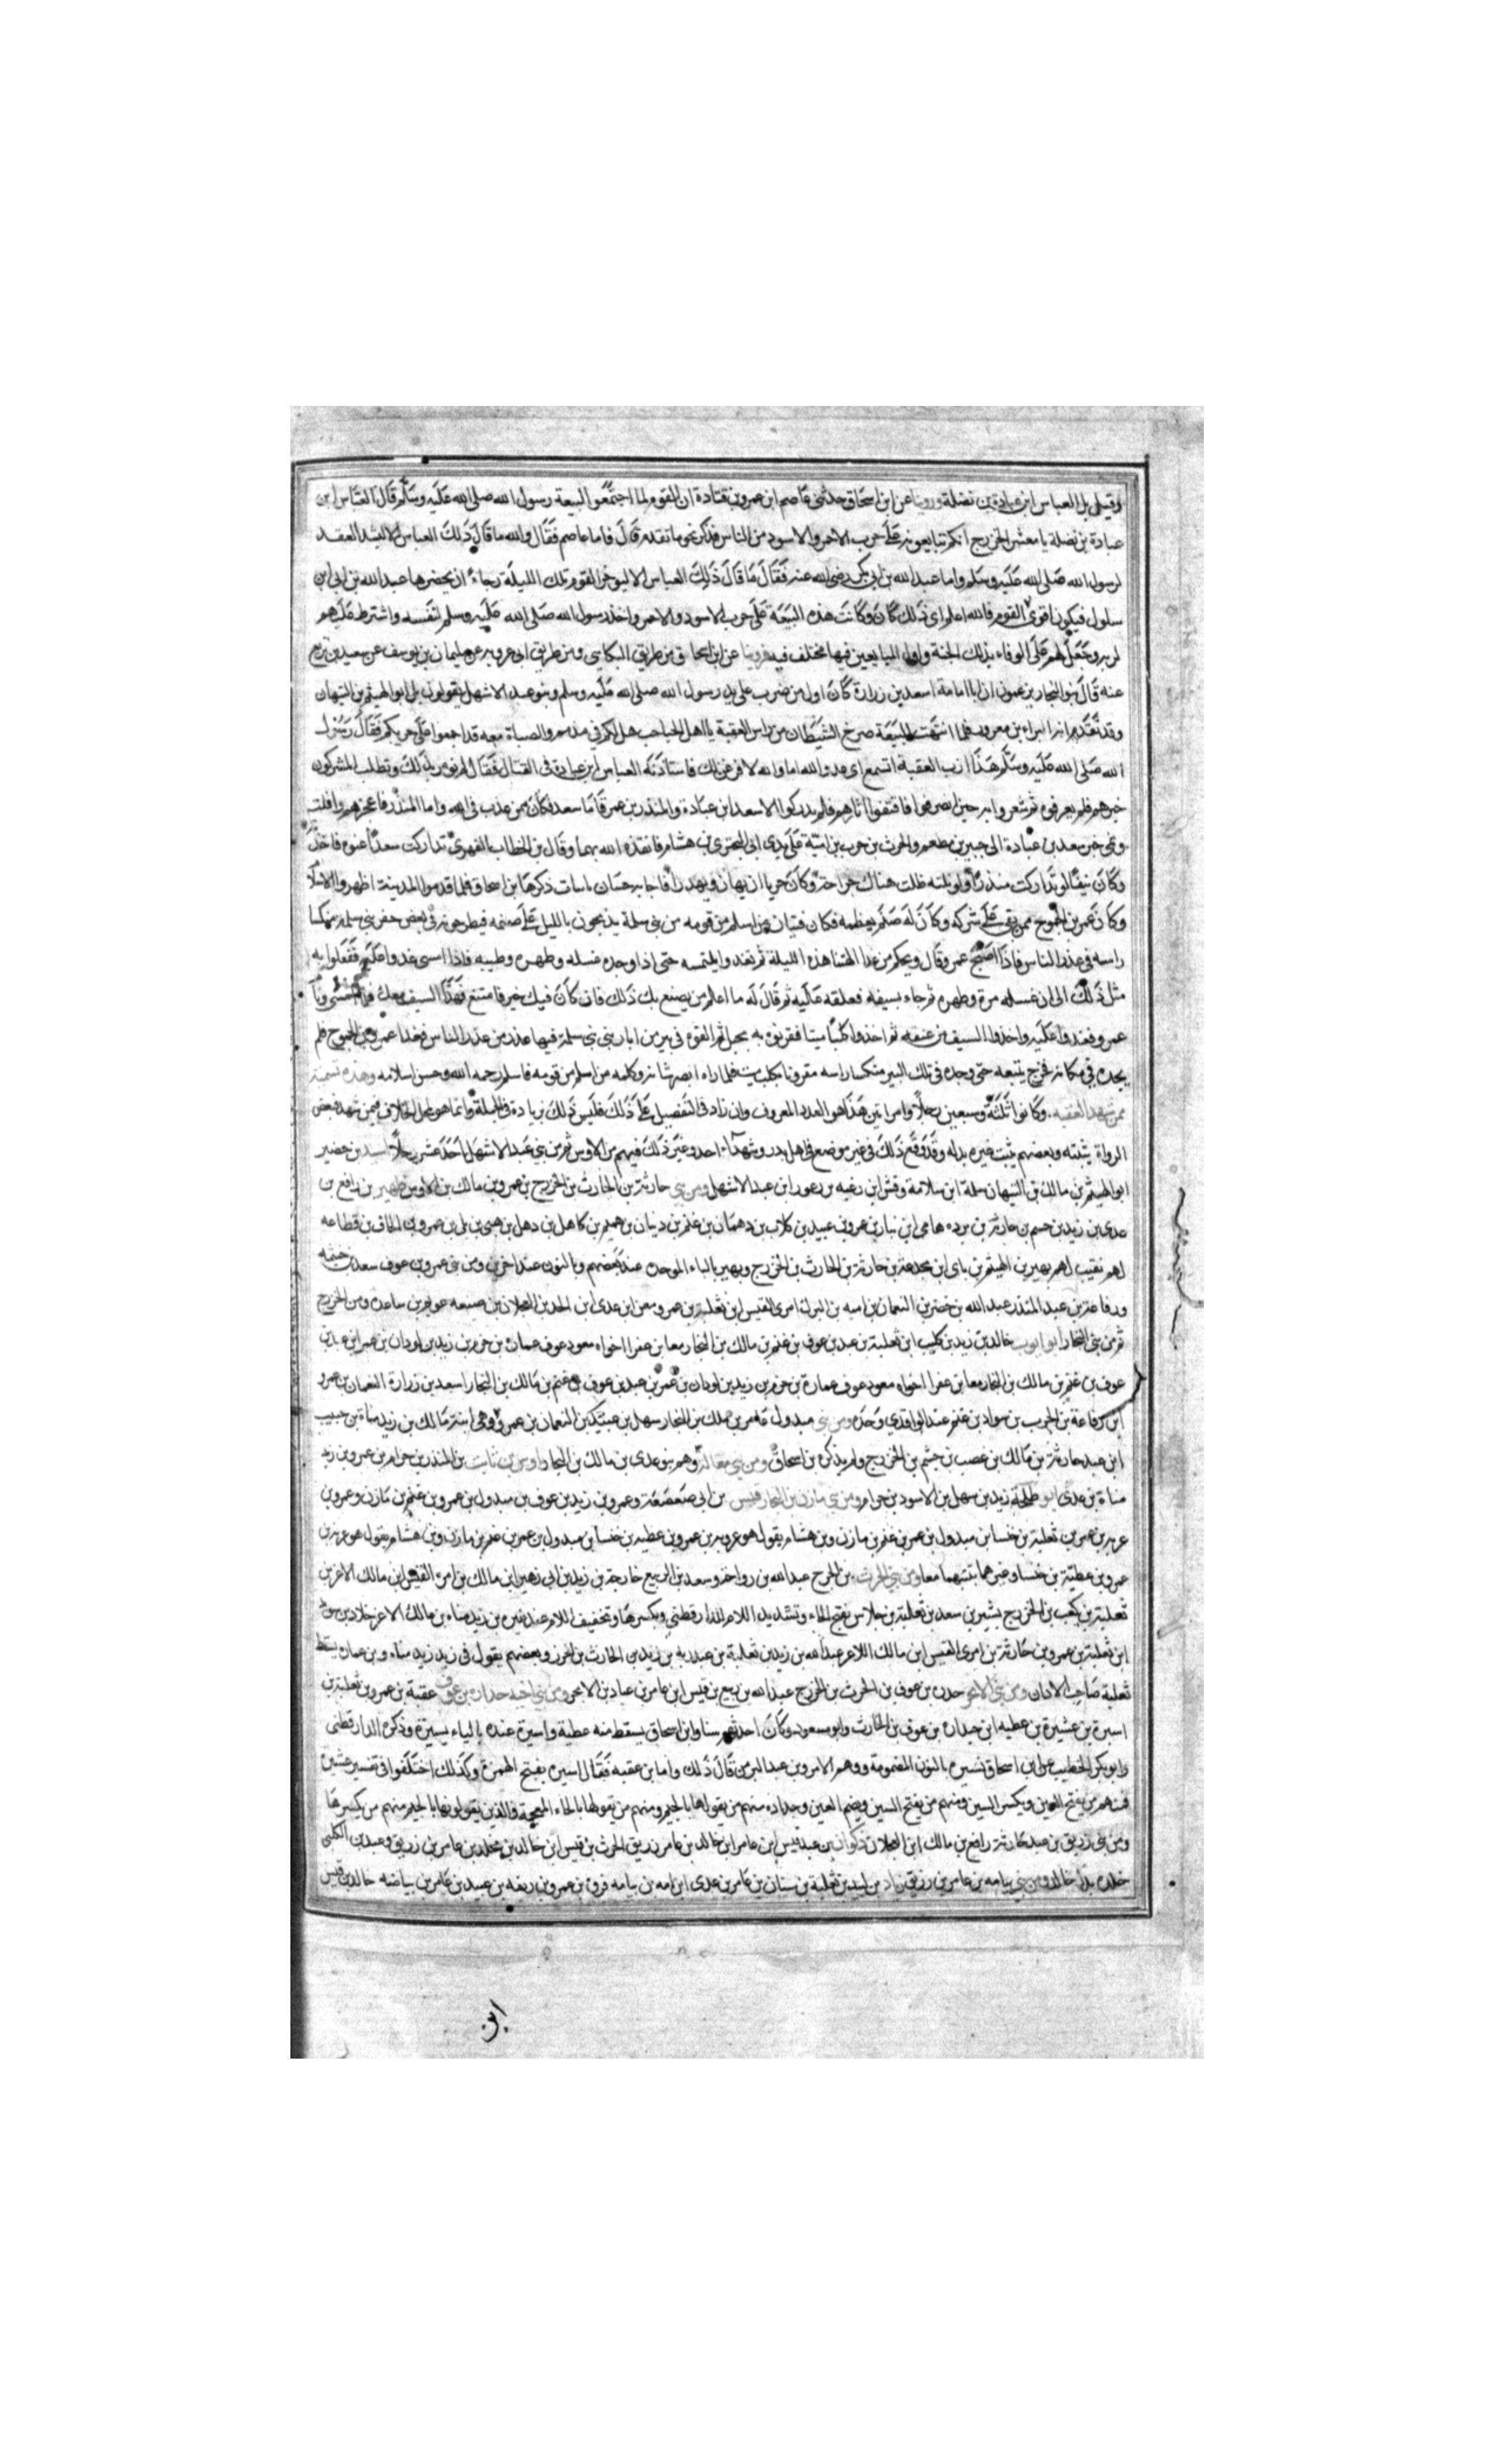 وقيل بل العباس ابن عبادة بن نضلة وروينا عن ابن اسحاق حدثني عاصم ابن عمرو بن قتادة ان القوم لما اجتمعوا لبيعة رسول الله صلى الله عليه وسلم قال العباس ابن
عبادة بن نضلة يا معشر الخزرج انكم تبايعونه على حرب الاحمر والاسود من الناس فذكر نحو ما تقدم قال فاما عاصم فقال والله ما قال ذلك العباس الا ليشد العقد
لرسول الله صلى الله عليه وسلم واما عبد الله بن ابي بكر رضي الله عنه فقال ما قال ذلك العباس الا ليوخر القوم تلك الليلة رجاء ان يحضرها عبد الله بن ابي ابن
سلول فيكون اقوى القوم فالله اعلم اي ذلك كان وكانت هذه البيعة على حرب الاسود والاحمر واخذ رسول الله صلى الله عليه وسلم لنفسه واشترط عليهم
لربه وجعل لهم على الوفاء بذلك الجنة واول المبايعين فيها مختلف فيه فروينا عن ابن اسحاق من طريق البكايي ومن طريق ابي عروبة عن سليمان بن يوسف عن سعيد بن بزيع
عنه قال بنو النجار يزعمون ان ابا امامة اسعد بن زرارة كان اول من ضرب على يد رسول الله صلى الله عليه وسلم وبنو عبد الاشهل يقولون بل ابو الهيثم بن التيهان
وقد تقدم انه البراء بن معرور فلما انتهت البيعة صرخ الشيطان من راس العقبة يا اهل الجباجب هل لكم في مذمم والصباة معه قد اجمعوا على حربكم فقال رسول
الله صلى الله عليه وسلم هذا ازب العقبة اتسمع اي عدو الله اما والله لافرغن لك فاستاذنه العباس ابن عبادة في القتال فقال لم نومر بذلك وتطلب المشركون
خبرهم فلم يعرفوه ثم شعروا به حين انصرفوا فاقتفوا اثارهم فلم يدركوا الا سعد ابن عبادة والمنذر بن عمر فاما سعد فكان ممن عذب في الله واما المنذر فاعجزهم وافلت
ونمي خبر سعد بن عبادة الى جبير بن مطعم والحرث بن حرب بن امية على يدي ابي البختري بن هشام فانقذه الله بهما وقال بن الخطاب الفهري تداركت سعدا عنوه فاخذته
وكان شفا لو تداركت منذرا ولو نلته طلت هناك جراحته وكان حريا ان يهان ويهدرا فاجابه حسان بابيات ذكرها ابن اسحاق فلما قدموا المدينة اظهروا الاسلام
وكان عمر بن الجموح ممن بقي على شركه وكان له صنم يعظمه فكان فتيان ممن اسلم من قومه من بني سلمة يدلجون بالليل على صنمه فيطرحونه في بعض حفر بني سلمة منكسا
راسه في عذر الناس فاذا اصبح عمر وقال ويحكم من عدا الهتنا هذه الليلة ثم يغدو يلتمسه حتى اذا وجده غسله وطهره وطيبه فاذا امسى غدوا عليه ففعلوا به
مثل ذلك الى ان غسله مرة وطهره ثم جاء بسيفه فعلقه عليه ثم قال له ما اعلم من يصنع بك ذلك فان كان فيك خير فامتنع فهذا السيف معك فلما امسى ونام
عمرو فغدوا عليه واخذوا السيف من عنقه ثم اخذوا كلبا ميتا فقرنوه به بحبل ثم القوه في بير من ابار بني سلمة فيها عذر من عذر الناس فغدا عمرو بن الجموح فلم
يجده في مكانه فخرج يتبعه حتى وجده في تلك البير منكسا راسه مقرونا بكلب ميت فلما راه ابصر شانه وكلمه من اسلم من قومه فاسلم رحمه الله وحسن اسلامه وهذه تسمية
من شهد العقبة وكانوا ثلثة وسبعين رجلا وامراتين هذا هو العدد المعروف وان زاد في التفصيل على ذلك فليس ذلك بزيادة في الجملة وانما هو لمحل الخلاف فيمن شهد فبعض
الرواة يثبته وبعضهم يثبت غيره بدله وقد وقع ذلك في غير موضع في اهل بدر وشهداء احد وغير ذلك فيهم من الاوس ثم من بني عبد الاشهل احد عشر رجلا اسيد بن حضير
ابو الهيثم بن مالك بن التيهان سلمة ابن سلامة وقش ابن رغبه بن زعور ابن عبد الاشهل ومن بني حارثة بن الحارث بن الخزرج بن عمرو بن مالك بن الاوس ظهير بن رافع بن
عدي بن زيد بن جسم بن حارثة بن برده هاني ابن نيار بن عمرو بن عبيد بن كلاب بن دهمان بن غنم بن ذبيان بن هميم بن كاهل بن ذهل بن هني بن بلي بن عمرو بن الحاف بن قضاعه
لهم نقيب لهم بهير بن الهيثم بن نابي ابن مجدعة بن حارثة بن الحارث بن الخزرج وبهير بالباء الموحده عند بعضهم وبالنون عند اخرين ومن بني عمرو بن عوف سعد بن خيثمه
ورفاعة بن عبد المنذر عبد الله بن جبير بن النعمان بن اميه بن البرك امرى القيس ابن ثعلبة بن عمرو معن ابن عدي ابن الجد بن العجلان بن ضبيعه عويم بن ساعده ومن الخزرج
ثم من بني النجار ابو ايوب خالد بن زيد بن كليب ابن ثعلبة بن عبد بن عوف بن غنم بن مالك بن النجار معا بن عفرا اخواه معود عوف عماره بن حزم بن زيد بن لوذان بن عمر ابن عبد بن
عوف بن غنم بن مالك بن النجار معا بن عفرا اخواه معود عوف عمارة بن حزم بن زيد بن لوذان بن عمر بن عبد بن عوف بن غنم بن مالك بن النجار اسعد بن زرارة النعمان بن عمرو
ابن رفاعة بن الحرب بن سواد بن غنم عند الواقدي وحده ومن بني مبدول عامر بن ملك بن النجار سهل بن عتيك بن النعمان بن عمرو وهي ابنة مالك بن زيد مناة بن حبيب
ابن عبد حارثة بن مالك بن غضب بن جشم بن الخزرج ولم يذكره بن اسحاق ومن بني مغالة وهم بنو عدي بن مالك بن النجار اوس بن ثابت بن المنذر بن حرام بن عمرو بن زيد
مناة بن عدي ابو طلحة زيد بن سهل بن الاسود بن حرام ومن بني مازن بن النجار قيس بن ابي صعصعة وعمرو بن زيد بن عوف بن مبدول بن عمرو بن غنم بن مازن وعمرو بن
غزية بن عمر بن ثعلبة بن خنسا بن مبدول بن عمر بن غنم بن مازن وبن هشام يقول هو غزية بن عمرو بن عطيه بن خنسا بن مبدول بن عمر بن غنم بن مازن وبن هشام يقول هو غزية بن
عمرو بن عطية بن خنسا وغيرهما يثبتهما معا ومن بني الحرث بن الخزرج عبد الله بن رواحة وسعد بن الربيع خارجة بن زيد بن ابي زهير ابن مالك بن امرء القيس ابن مالك الاغر بن
ثعلبة بن كعب بن الخزرج بشير بن سعد بن ثعلبة بن جلاس بفتح الجاء وتشديد اللام الدارقطني وبكسرها وتخفيف اللام عند غيره بن زيد مناه بن مالك الاغر خلاد بن سويد
ابن ثعلبة بن عمرو بن حارثة بن امرى القيس ابن مالك الاغر عبد الله بن زيد بن ثعلبة بن عبد ربه بن زيد بن الحارث بن الخزرج وبعضهم يقول في زيد زيد مناه وبن عماره يسقط
ثعلبة صاحب الاذان ومن بني الابجر خدره بن عوف بن الحرث بن الخزرج عبد الله بن ربيع بن قيس ابن عامر بن عباد بن الابجر ومن بني اخيه جداره بن عوف عقبة بن عمرو بن ثعلبة بن
اسيرة بن عشيرة بن عطيه ابن جداره بن عوف بن الحارث وابو مسعود وكان احدثهم سنا وابن اسحاق يسقط منه عطية واسيرة عنده بالياء يسيرة وذكره الدارقطني
وابو بكر الخطيب عن ابن اسحاق نسيرة بالنون المضمومة ووهم الامر وبن عبد البر من قال ذلك واما بن عقبه فقال اسيره بفتح الهمزة وكذلك اختلفوا في تفسير عشيره
فمنهم من يفتح العين ويكسر السين ومنهم من يفتح السين ويضم العين وجداره منهم من يقولها بالجيم ومنهم من يقولها بالخاء المعجمة فالذين يقولونها بالجيم منهم من يكسرها
ومن بني زريق بن عبد حارثة رافع بن مالك ابن العجلان ذكوان بن عبد قيس ابن عامر ابن خالد بن عامر زريق الحرث بن قيس ابن خالد بن مخلد بن عامر بن زريق وعبد بن الكلبي
خلده بدل خالد ومن بني بياضه بن عامر بن زريق زياد بن لبيد بن ثعلبة بن سنان بن عامر بن عدي ابن اميه بن بياضه فروة بن عمرو بن ودفه بن عبيد بن عامر بن بياضه خالد بن قيس
ابن